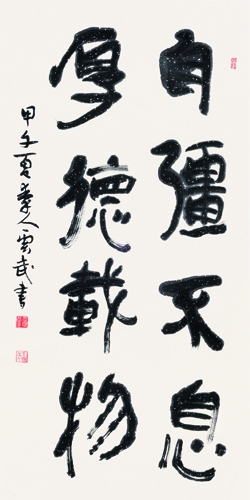 自彊不息
厚德載物
甲午夏秦人雲武書